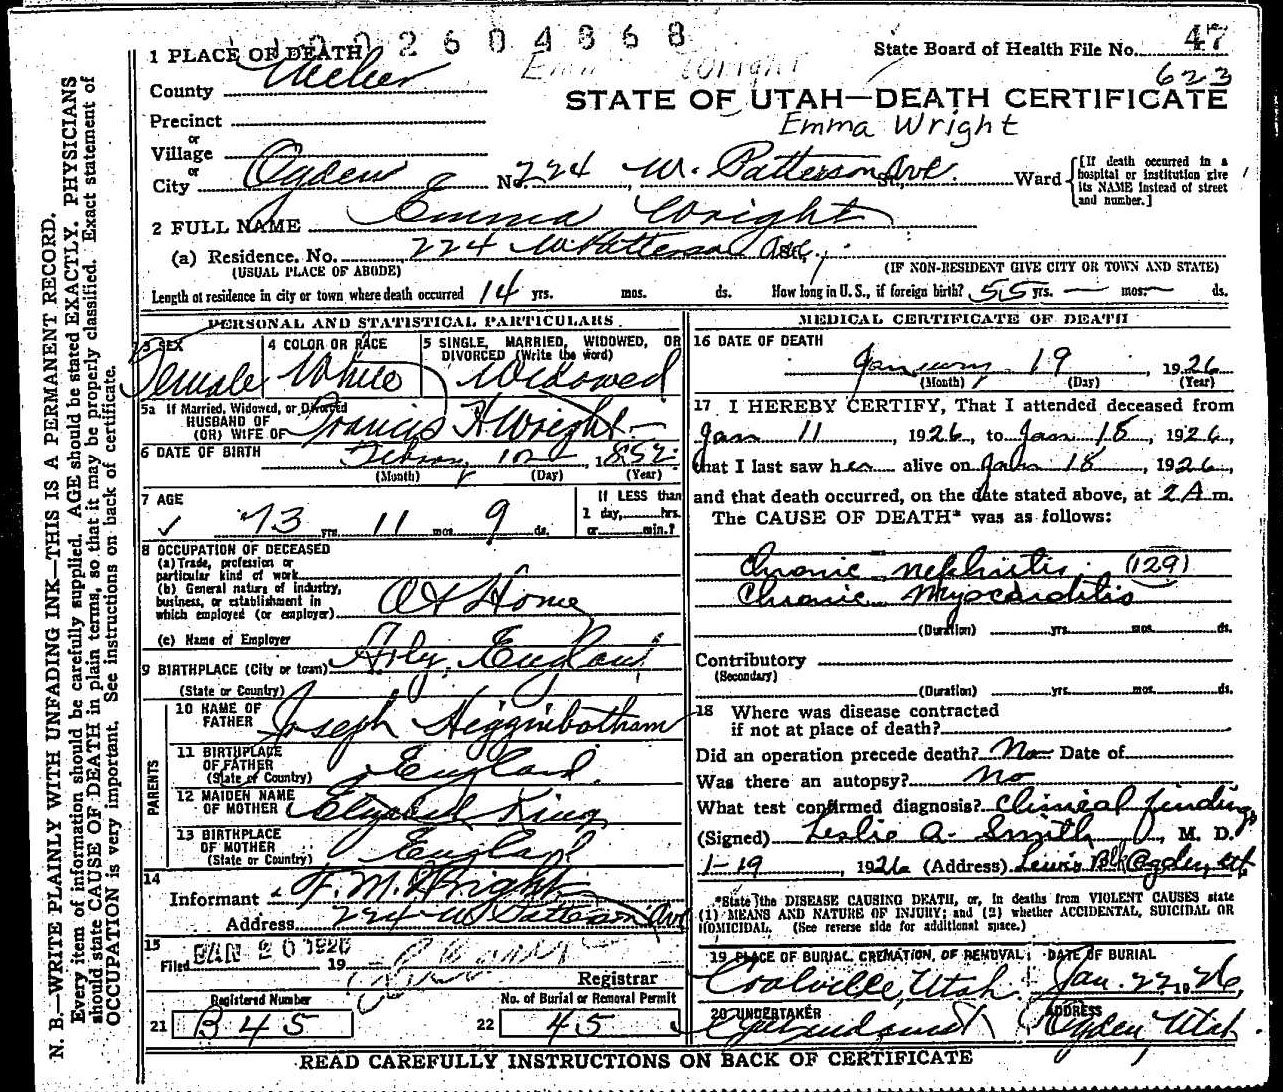 1002604868
1 PLACE OF DEATH
Emma Wright
State Board of Health File No. 47
623
County Weber
STATE OF UTAH—DEATH CERTIFICATE
Emma Wright
Precinct
or
Village
or
City Ogden No. 224 W. Patterson St., Ave. Ward
[If death occurred in a
hospital or institution give
its NAME instead of street
and number.]
2 FULL NAME Emma Wright
(a) Residence, No. 224 W. Patterson Ave.
(USUAL PLACE OF ABODE) (IF NON-RESIDENT GIVE CITY OR TOWN AND STATE)
Length of residence in city or town where death occurred 14 yrs. mos. ds. How long in U. S., if foreign birth? 55 yrs. — mos. — ds.
PERSONAL AND STATISTICAL PARTICULARS
3 SEX Female
4 COLOR OR RACE White
5 SINGLE, MARRIED, WIDOWED, OR
DIVORCED (Write the word)
Widowed
5a If Married, Widowed, or Divorced
HUSBAND OF
(OR) WIFE OF Francis H Wright
6 DATE OF BIRTH 1852
(Month) (Day) (Year)
7 AGE 73 yrs. 11 mos. 9 ds.
If LESS than
1 day, hrs.
or min.?
8 OCCUPATION OF DECEASED
(a) Trade, profession or
particular kind of work
(b) General nature of industry,
business, or establishment in
which employed (or employer) At Home
(c) Name of Employer
9 BIRTHPLACE (City or town) England
(State or Country)
PARENTS
10 NAME OF
FATHER Joseph Higginbotham
11 BIRTHPLACE
OF FATHER
(State of Country) England
12 MAIDEN NAME
OF MOTHER Elizabeth King
13 BIRTHPLACE
OF MOTHER
(State or Country) England
14
Informant F. M. Wright
Address 224 W Patterson Ave
15
Filed JAN 20 1926 19
Registrar
Registered Number
21 B 45
No. of Burial or Removal Permit
22 45
MEDICAL CERTIFICATE OF DEATH
16 DATE OF DEATH
January 19, 1926
(Month) (Day) (Year)
17 I HEREBY CERTIFY, That I attended deceased from
Jan 11, 1926, to Jan 18, 1926,
that I last saw her alive on Jan 18, 1926,
and that death occurred, on the date stated above, at 2 A m.
The CAUSE OF DEATH* was as follows:
Chronic nephritis (129)
Chronic Myocarditis
(Duration) yrs. mos. ds.
Contributory
(Secondary)
(Duration) yrs. mos. ds.
18 Where was disease contracted
if not at place of death?
Did an operation precede death? No Date of
Was there an autopsy? no
What test confirmed diagnosis? Clinical findings
(Signed) Leslie A. Smith, M. D.
1-19, 1926 (Address) Lewis Blk Ogden, Ut.
*State the DISEASE CAUSING DEATH, or, in deaths from VIOLENT CAUSES state
(1) MEANS AND NATURE OF INJURY; and (2) whether ACCIDENTAL, SUICIDAL OR
HOMICIDAL. (See reverse side for additional space.)
19 PLACE OF BURIAL, CREMATION, OF REMOVAL DATE OF BURIAL
Coalville, Utah. Jan. 22 1926,
20 UNDERTAKER ADDRESS
Ogden, Utah.
READ CAREFULLY INSTRUCTIONS ON BACK OF CERTIFICATE
N. B.—WRITE PLAINLY WITH UNFADING INK—THIS IS A PERMANENT RECORD.
Every item of information should be carefully supplied. AGE should be stated EXACTLY. PHYSICIANS
should state CAUSE OF DEATH in plain terms, so that it may be properly classified. Exact statement of
OCCUPATION is very important. See instructions on back of certificate.